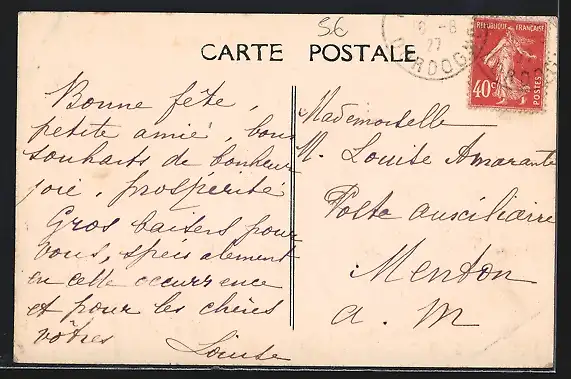 56
CARTE POSTALE
10 -8
27
DORDOGNE
REPUBLIQUE FRANÇAISE
40c
POSTES
Bonne fête,
petite amie, bons
souhaits de bonheur
joie, prospérité
Gros baisers pour
vous, spécialement
en cette occurrence
et pour les chères
vôtres
Louise
Mademoiselle
M. Louise Amarante
Poste auxiliaire
Menton
A. M